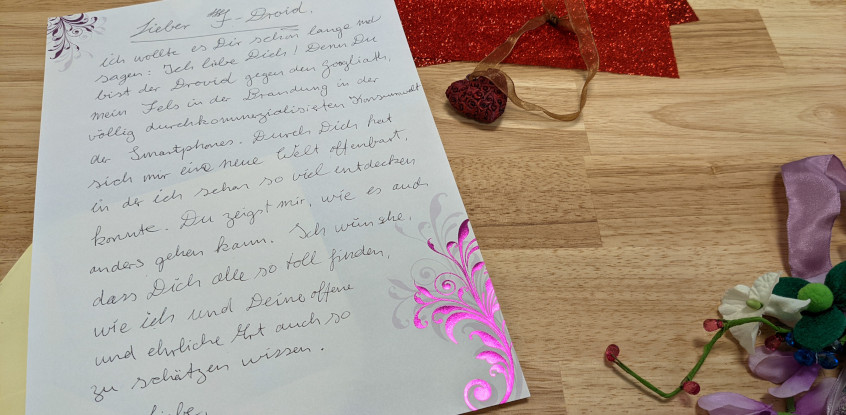 Lieber F-Droid,
ich wollte es Dir schon lange mal
sagen: Ich liebe Dich! Denn Du
bist der Drovid gegen den Googliath,
mein Fels in der Brandung in der
völlig durchkommerzialisierten Konsumwelt
der Smartphones. Durch Dich hat
sich mir eine neue Welt offenbart,
in der ich schon so viel entdecken
konnte. Du zeigst mir, wie es auch
anders gehen kann. Ich wünsche,
dass Dich alle so toll finden,
wie ich und Deine offene
und ehrliche Art auch so
zu schätzen wissen.